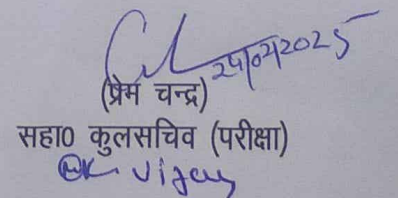 24/02/2025
(प्रेम चन्द्र)
सहा० कुलसचिव (परीक्षा)
Vijay